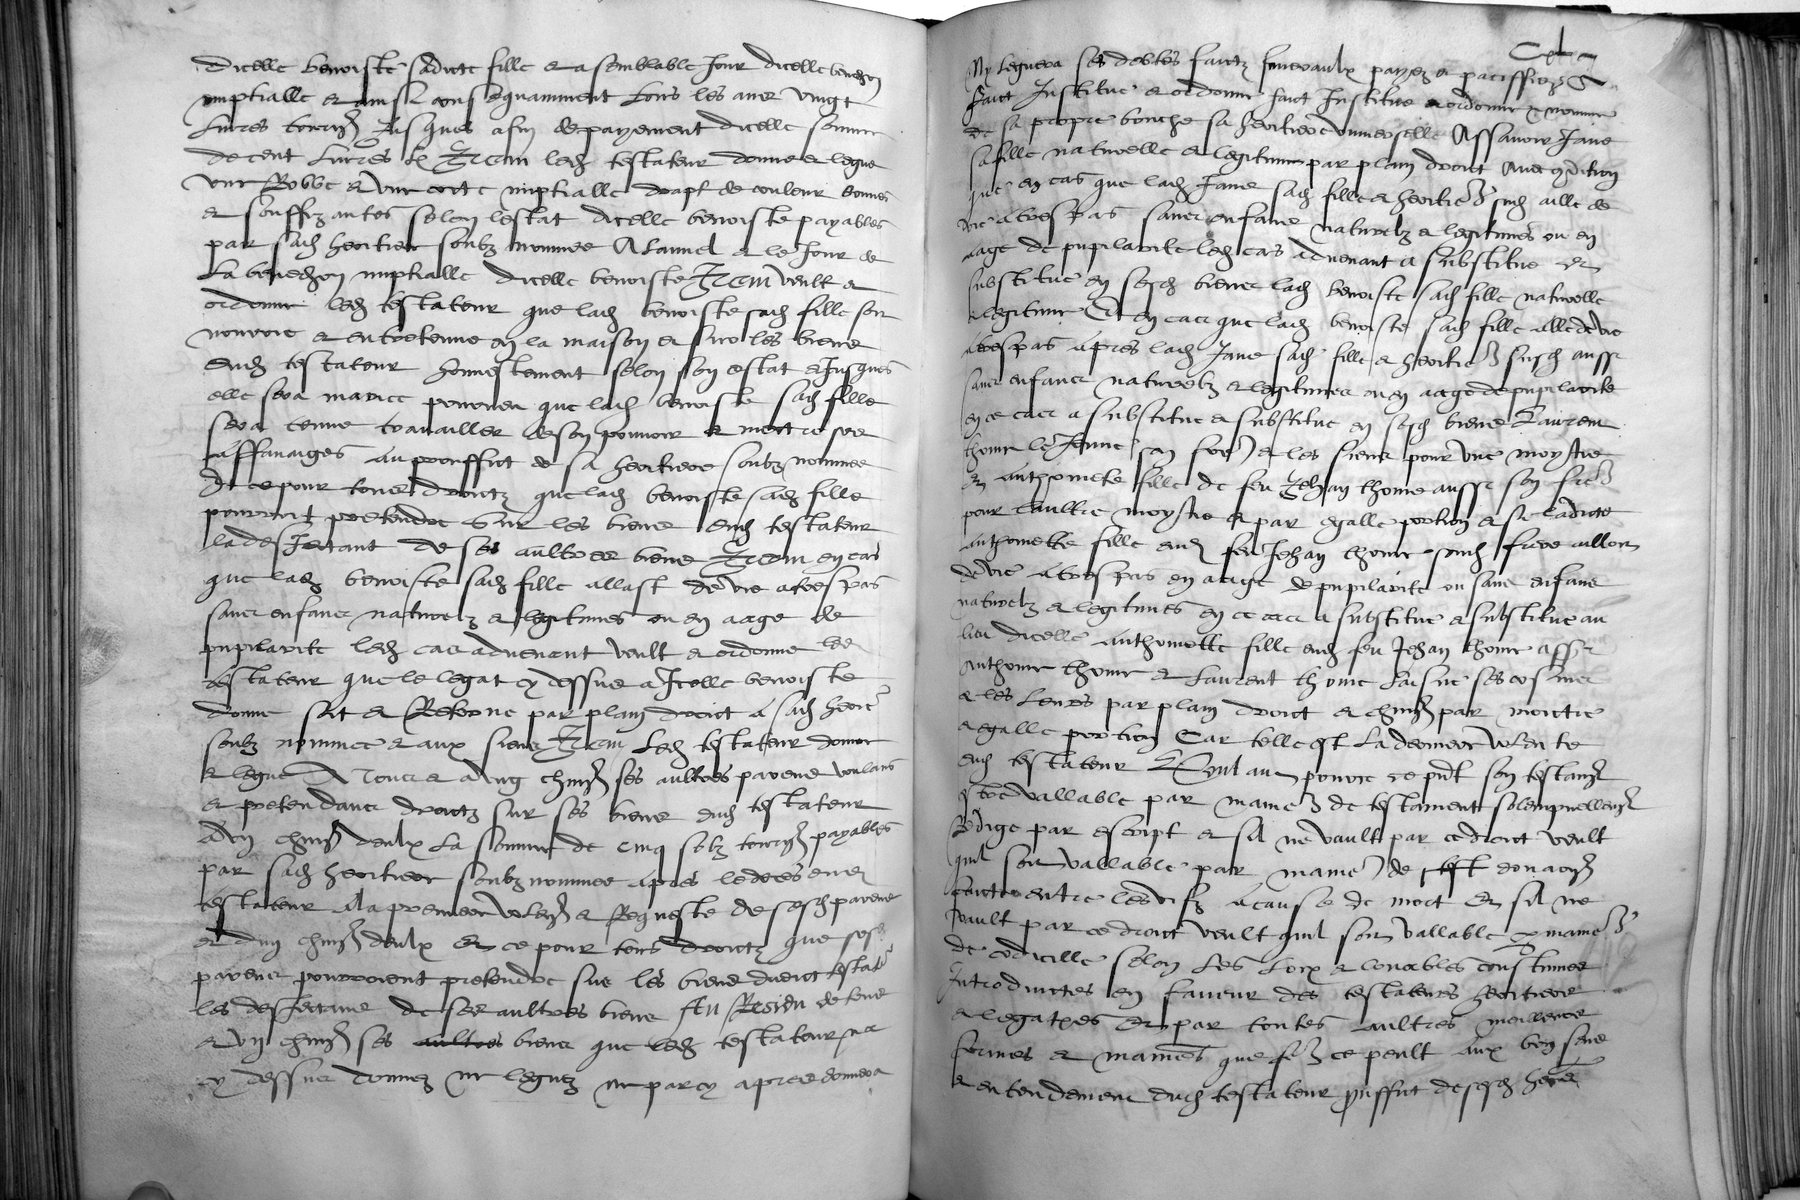 dicelle benoiste sadicte fille et a semblable jour dicelle benedon
nuptialle et ainsi consequamment tous les ans vingt
livres tourn jusques a fin de payement dicelle somme
de cent livres tz Item led testateur donne et legue
une Robbe et une cotte nuptialle drapt de couleur bonnes
et souffizantes selon lestat dicelle benoiste payables
par sad heritiere soubz nommee et le jour de
la benedon nuptialle dicelle benoiste Item veult et
ordonne led testateur que lad benoiste sad fille soit
nourrie et entretenue en la maison et sur les biens
dud testateur honnestement selon son estat et jusques
elle sera mariee pourveu que lad benoiste sad fille
sera tenue travailler de son pouvoir et mettre ses
affanaiges au prouffict de sa heritiere soubz nommee
Et ce pour tous droictz que lad benoiste sad fille
pourroit pretendre sur les biens dud testateur
la desjectant de ses aultres biens Item en cas
que lad benoiste sad fille allast de vie a trespas
sans enfans naturelz et legitimes ou en aage de
pupilarite led cas advenant veult et ordonne led
testateur que le legat cy dessus a icelle benoiste
donne soit et Retorne par plain droict a sad herit
soubz nommee et aux siens Item led testateur donne
et legue A tous et a ung chascun ses aultres parens voulans
et pretendans droictz sur ses biens dud testateur
a ung chascun deulx la somme de cinq solz tourn payables
par sad heritiere soubz nommee apres le deces dud
testateur a la premiere et Requeste de sesd parens
et dung chascun deulx Et ce pour tous droictz que sesd
parens pourroient pretendre sur les biens dudict testat
les desjectans de ses aultres biens Au Residu de tous
et ung chascun ses aultres biens que led testateur na
cy dessus donnez ne leguez ne par cy apres donnera
Cxl
Ny leguera ses debtes faictz funeraulx payez et pacifficz
faict Institue et ordonne faict Institue et ordonne et nomme
de sa propre bouche sa heritiere universelle Assavoir Jane
sa fille naturelle et legitime par plain droict Avec condition
que en cas que lad Jane sad fille et heritiere susd aille de
vie a trespas sans enfans naturelz et legitimes ou en
aage de pupilarite led cas advenant a substitue et
substitue en sesd biens lad benoiste sad fille naturelle
et legitime Et en cas que lad benoiste sad fille alle de vie
a trespas apres lad Jane sad fille et heritiere susd aussi
sans enfans naturelz et legitimes ou en aage de pupilarite
en ce cas a substitue et substitue en sesd biens Laurens
thome le jeune son frere et les siens pour une moytie
Et anthoinette fille de feu Jehan thome aussi son frere
pour laultre moytie et par egalle portion et si ladicte
anthoinette fille dud feu Jehan thome sond frere alloit
de vie a trespas en aaige de pupilarite ou sans enfans
naturelz et legitimes en ce cas a substitue et substitue au
lieu dicelle anthoinette fille dud feu Jehan thome
anthoine thome et Laurent thome laisne ses cosins
et les leurs par plain droict et chascun par moictie
et egalle portion Car telle est la derniere volunte
dud testateur Voulant pouvoir ce pnt son testament
estre vallable par maniere de testament solempnellement
Redige par escript et sil ne vault par ce droict veult
quil soit vallable par maniere de donation
faicte entre les vifz a cause de mort Et sil ne
vault par ce droict veult quil soit vallable par maniere
de codicille selon les loix et louables coustumes
introduictes en faveur des testateurs heritiers
et legatres Et par toutes aultres meilleurs
formes et manieres que fere ce peult Aux bon sens
et entendement dud testateur prouffict de sesd herit